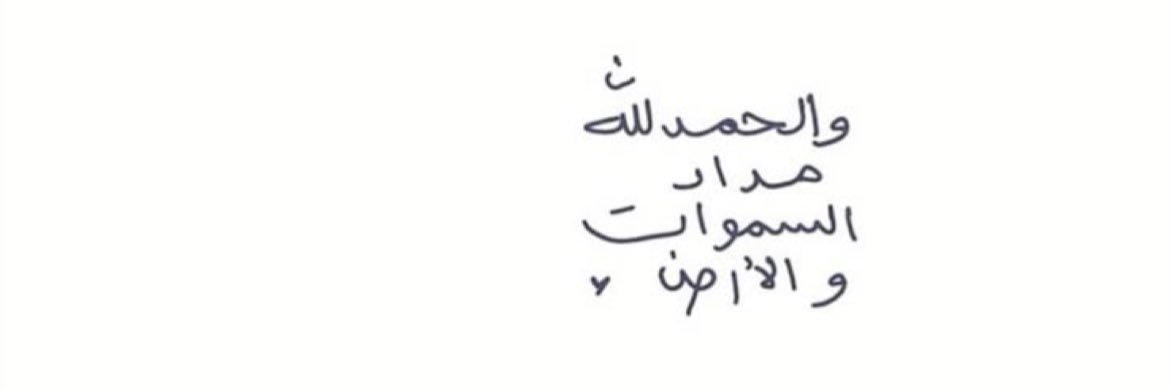 والحمد لله
مداد
السموات
و الأرض